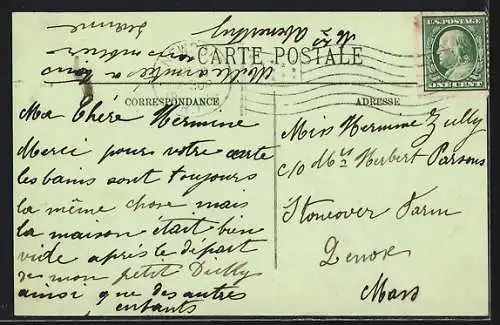 CARTE POSTALE
U.S. POSTAGE
ONE CENT
CORRESPONDANCE
ADRESSE
Ma Chére Hermine
Merci pour votre carte
les bains sont toujours
la même chose mais
la maison était bien
vide après le départ
de mon petit
ainsi que des autres
enfants
Mille amitiés a
Miss Hermine Zully
c/o Mrs Herbert Parsons
Stoneover Farm
Lenox
Mass